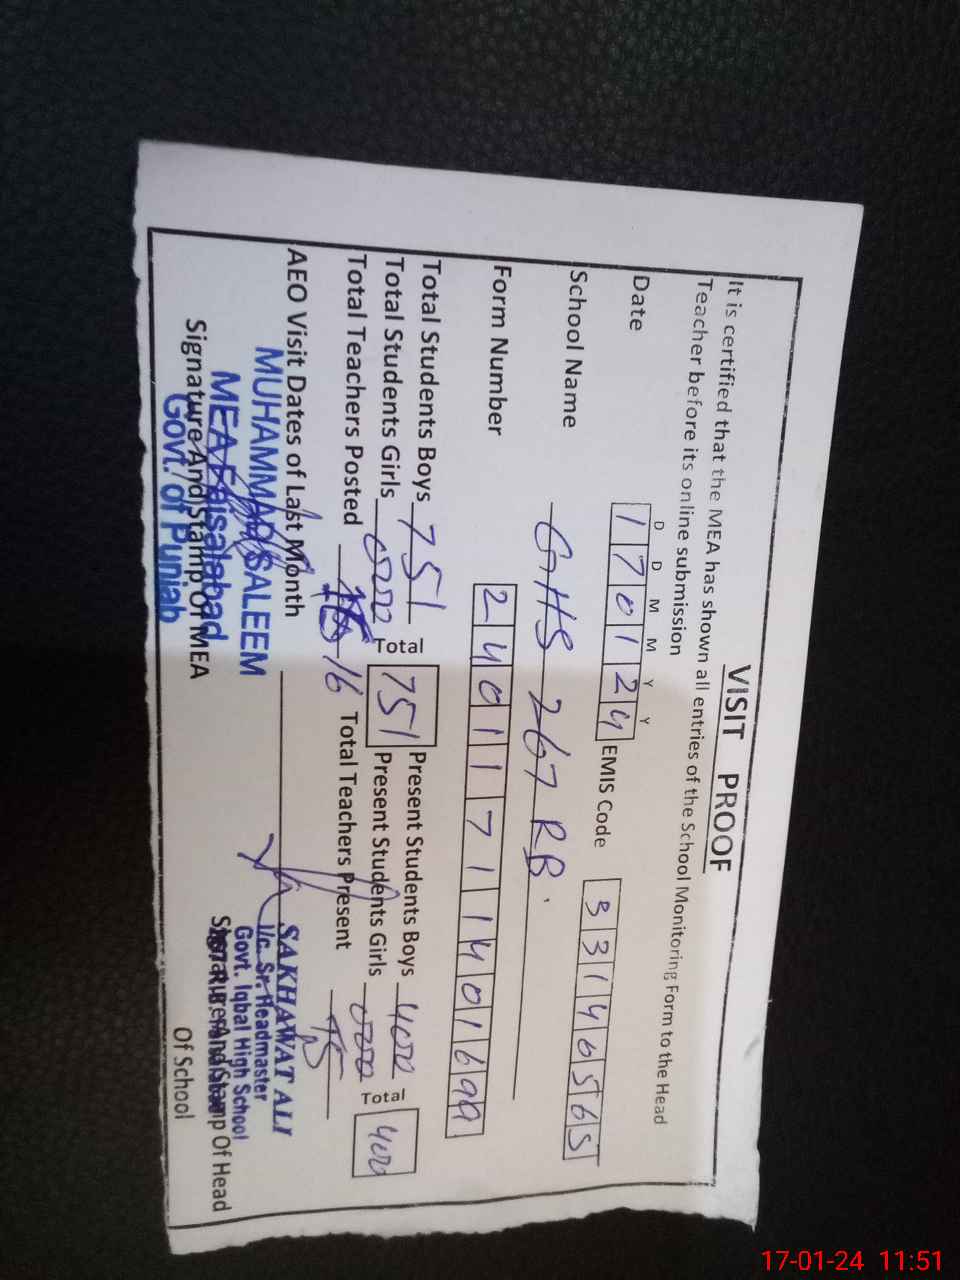 VISIT PROOF
It is certified that the MEA has shown all entries of the School Monitoring Form to the Head
Teacher before its online submission
D D M M Y Y
Date 170124 EMIS Code 33146565
School Name GHS 267 RB.
Form Number 24011711401699
Total Students Boys 751 Total 751 Present Students Boys 400 Total 400
Total Students Girls 000 Present Students Girls 000
Total Teachers Posted 16 Total Teachers Present 15
AEO Visit Dates of Last Month
MUHAMMAD SALEEM
MEA Faisalabad
Govt. of Punjab
Signature And Stamp Of MEA
SAKHAWAT ALI
I/c. Sr. Headmaster
Govt. Iqbal High School
Signature And Stamp Of Head
Of School
17-01-24 11:51